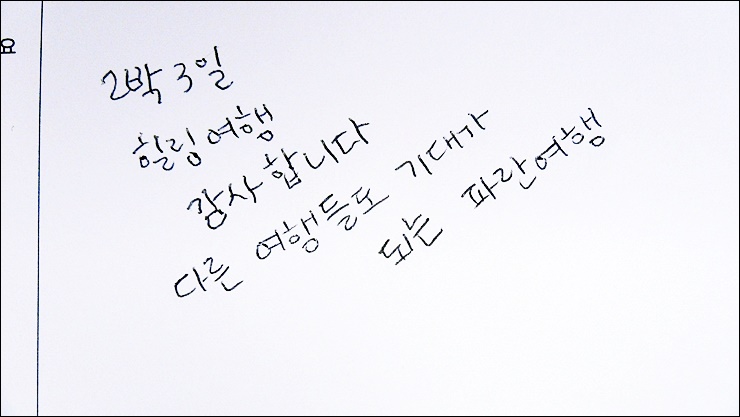 요
2박 3일
힐링여행
감사합니다
다른 여행들도 기대가
되는 파란여행